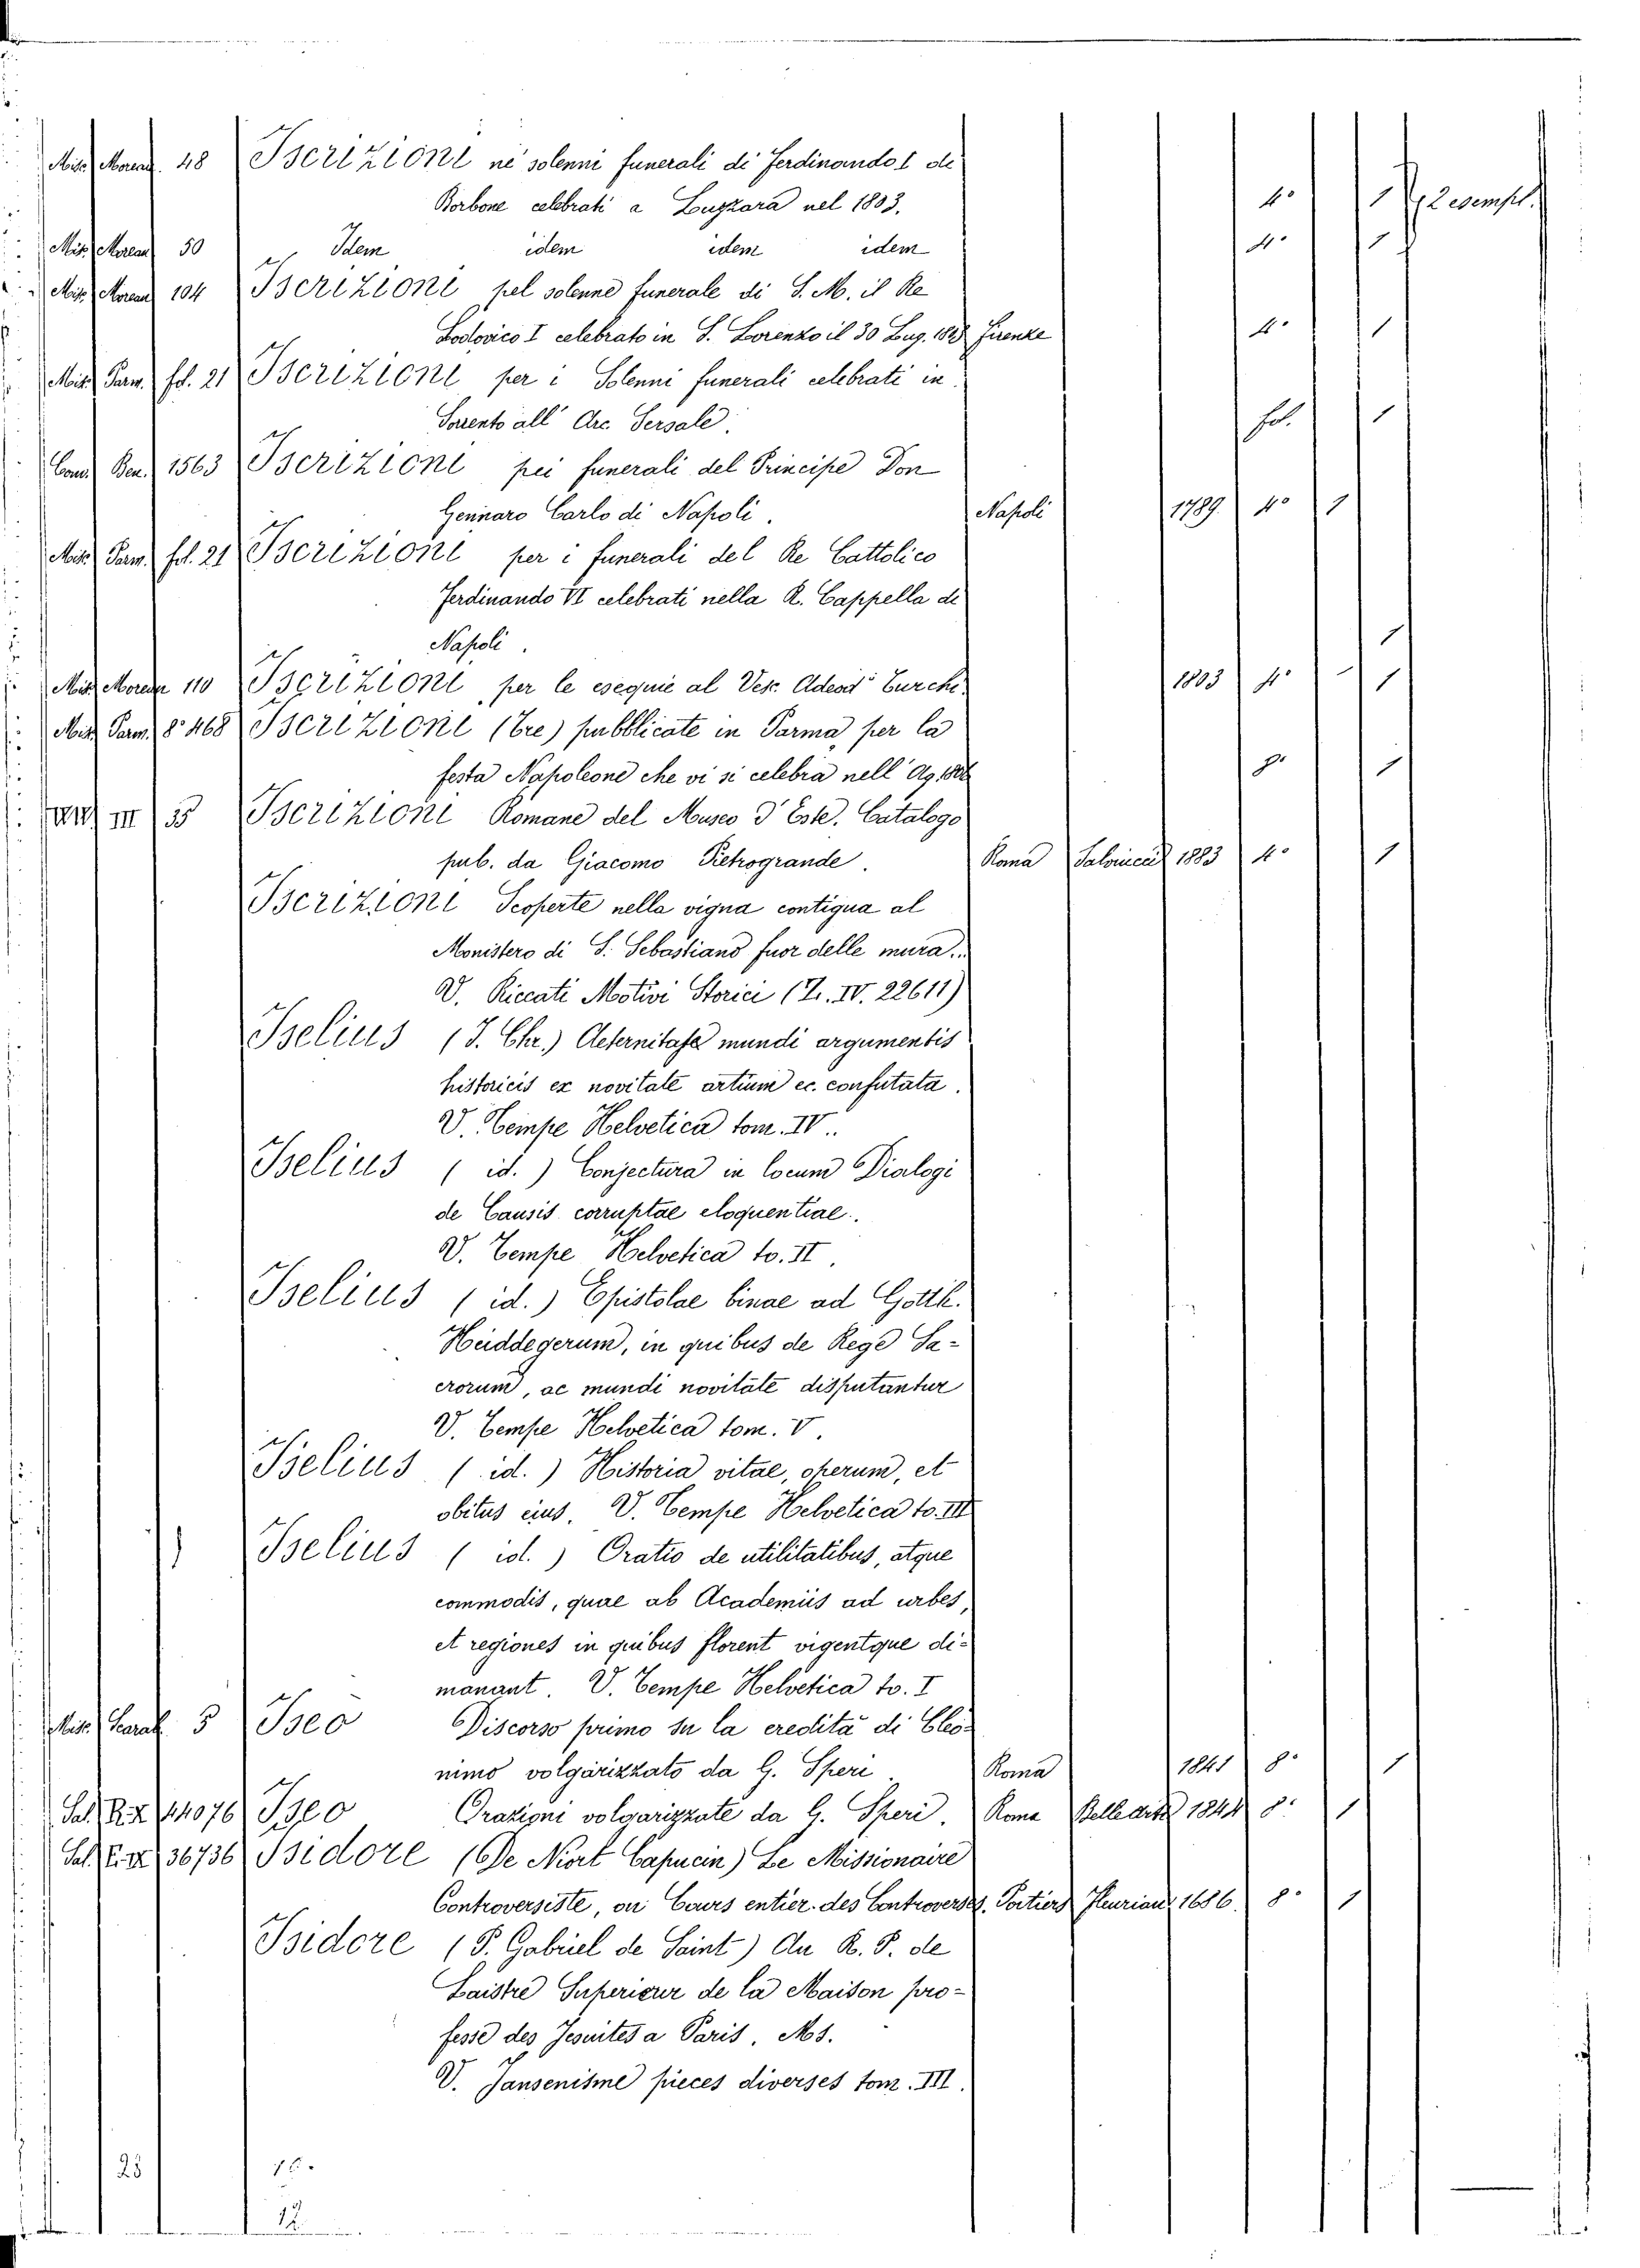 Mis. Moreau. 48 Iscrizioni nè solenni funerali di Ferdinando I di
Borbone celebrati a Luzzara nel 1803. 4° 1 2 esempl.
Mis. Moreau 50 Idem idem idem idem 4° 1
Mis. Moreau 104 Iscrizioni pel solenne funerale di S. M. il Re
Lodovico I celebrato in S. Lorenzo il 30 Lug. 1803 Firenze 4° 1
Mis. Parm. fol. 21 Iscrizioni per i Solenni funerali celebrati in
Sorrento all' Arc. Sersale. fol. 1
Cons. Ben. 1563 Iscrizioni pei funerali del Principe Don
Gennaro Carlo di Napoli. Napoli 1789. 4° 1
Mis. Parm. fol. 21 Iscrizioni per i funerali del Re Cattolico
Ferdinando VI celebrati nella R. Cappella di
Napoli. 1
Mis. Moreau 110 Iscrizioni per le esequie al Vesc. Adeod. Turchi. 1803 4° 1
Mis. Parm. 8° 468 Iscrizioni (Tre) pubblicate in Parma, per la
festa Napoleone che vi si celebra nell' Ag. 1806 8° 1
III 35 Iscrizioni Romane del Museo d'Este. Catalogo
pub. da Giacomo Pietrogrande. Roma Salviucci 1883 4° 1
Iscrizioni Scoperte nella vigna contigua al
Monistero di S. Sebastiano fuor delle mura..
V. Riccati Motivi Storici (Z. IV. 22611)
Iselius (J. Chr.) Aeternitas mundi argumentis
historicis ex novitate artium ec. confutata.
V. Tempe Helvetica tom. IV..
Iselius ( id. ) Conjectura in locum Dialogi
de Causis corruptae eloquentiae.
V. Tempe Helvetica to. II.
Iselius ( id. ) Epistolae binae ad Gotth.
Heiddegerum, in quibus de Rege Sa-
crorum, ac mundi novitate disputantur
V. Tempe Helvetica tom. V.
Iselius ( id. ) Historia vitae, operum, et
obitus eius. V. Tempe Helvetica to. III
Iselius ( id. ) Oratio de utilitatibus, atque
commodis, quae ab Academiis ad urbes,
et regiones in quibus florent vigentque di-
manant. V. Tempe Helvetica to. I
Mis. 5 Iseo Discorso primo su la eredità di Cleo-
nimo volgarizzato da G. Speri. Roma 1841 8° 1
44076 Iseo Orazioni volgarizzate da G. Speri. Roma Belle Arti 1844 8° 1
36736 Isidore (De Niort Capucin) Le Missionaire
Controversiste, ou Cours entier des Controverses. Poitiers Fleuriau 1686. 8° 1
Isidore (P. Gabriel de Saint) Au R. P. de
Laistre Superieur de la Maison pro-
fesse des Jesuites a Paris. Ms.
V. Jansenisme pieces diverses tom. III.
25
12